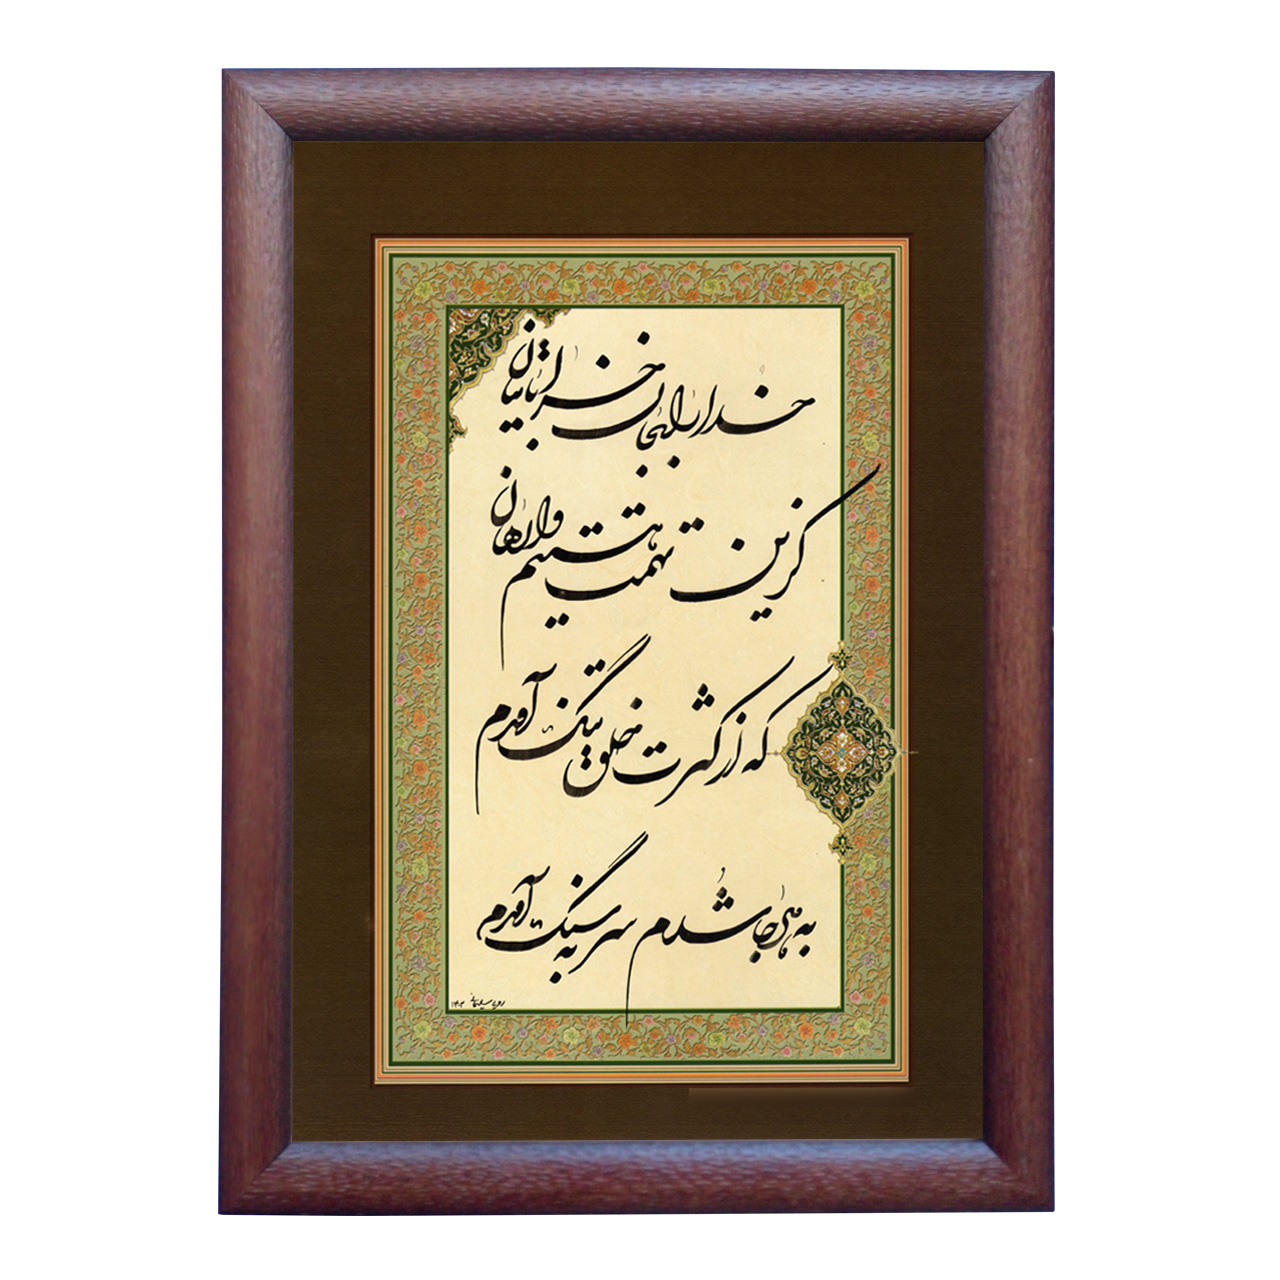 خدا را بجان خراباتیان
کزین تهمت هستیم وارهان
که از کثرت خلق بتنگ آمدم
به هر جا شدم سر به سنگ آمدم